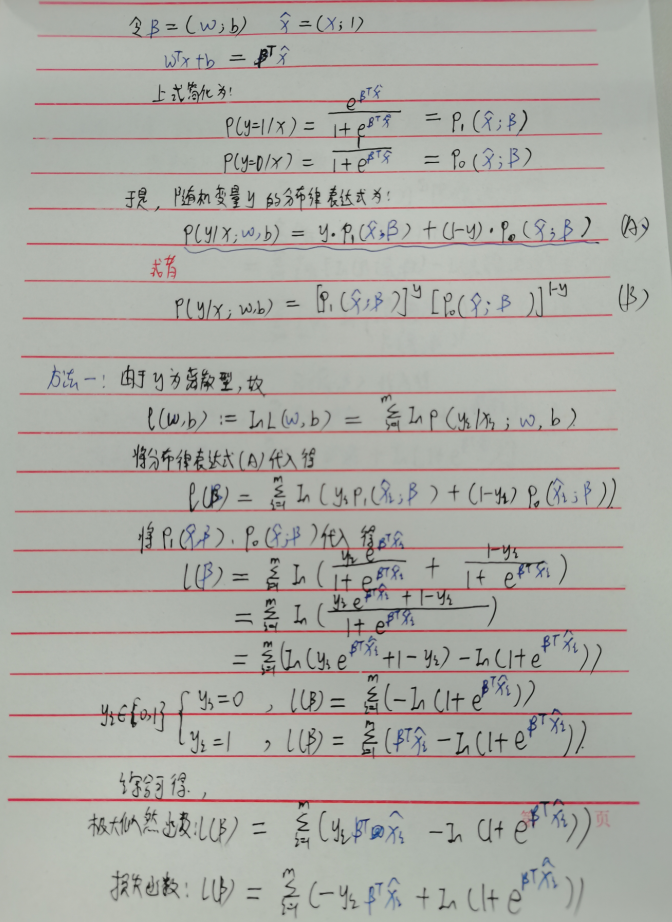 令β=(w;b) x̂=(x;1)
wᵀx+b = βᵀx̂
上式简化为:
P(y=1/x) = e^{βᵀx̂} / (1+e^{βᵀx̂}) = P₁(x̂;β)
P(y=0/x) = 1 / (1+e^{βᵀx̂}) = P₀(x̂;β)
于是, 随机变量y的分布律表达式为:
P(y/x;w,b) = y·P₁(x̂;β)+(1-y)·P₀(x̂;β) (A)
或者
P(y/x;w,b) = [P₁(x̂;β)]^y [P₀(x̂;β)]^{1-y} (B)
方法一: 由于y为离散型,故
l(w,b) := ln L(w,b) = Σ_{i=1}^m ln P(yᵢ/xᵢ;w,b)
将分布律表达式(A)代入得
l(β) = Σ_{i=1}^m ln(yᵢP₁(x̂ᵢ;β)+(1-yᵢ)P₀(x̂ᵢ;β))
将P₁(x̂;β).P₀(x̂;β)代入得
l(β) = Σ_{i=1}^m ln(yᵢe^{βᵀx̂ᵢ} / (1+e^{βᵀx̂ᵢ}) + (1-yᵢ) / (1+e^{βᵀx̂ᵢ}))
= Σ_{i=1}^m ln((yᵢe^{βᵀx̂ᵢ}+1-yᵢ) / (1+e^{βᵀx̂ᵢ}))
= Σ_{i=1}^m (ln(yᵢe^{βᵀx̂ᵢ}+1-yᵢ)-ln(1+e^{βᵀx̂ᵢ}))
yᵢ∈{0,1} { yᵢ=0 , l(β) = Σ_{i=1}^m (-ln(1+e^{βᵀx̂ᵢ}))
yᵢ=1 , l(β) = Σ_{i=1}^m (βᵀx̂ᵢ-ln(1+e^{βᵀx̂ᵢ}))
综合可得,
极大似然函数:l(β) = Σ_{i=1}^m (yᵢβᵀx̂ᵢ -ln(1+e^{βᵀx̂ᵢ})) 页
损失函数:l(β) = Σ_{i=1}^m (-yᵢβᵀx̂ᵢ+ln(1+e^{βᵀx̂ᵢ}))